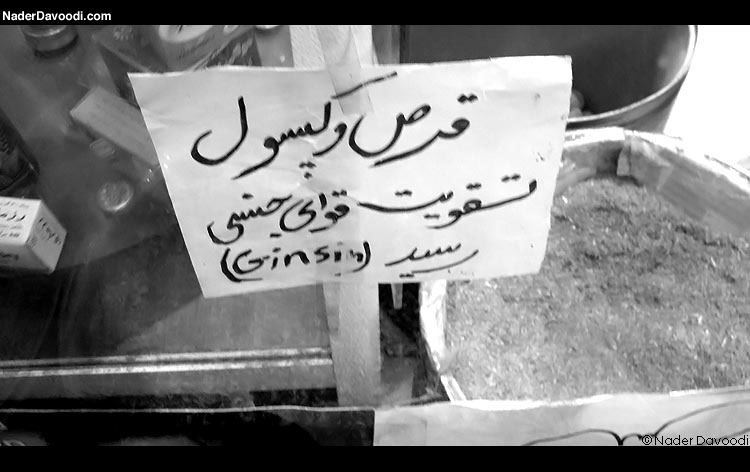 NaderDavoodi.com
قرص و کپسول
تقویت قوای جنسی
(Ginsin) رسید
© Nader Davoodi